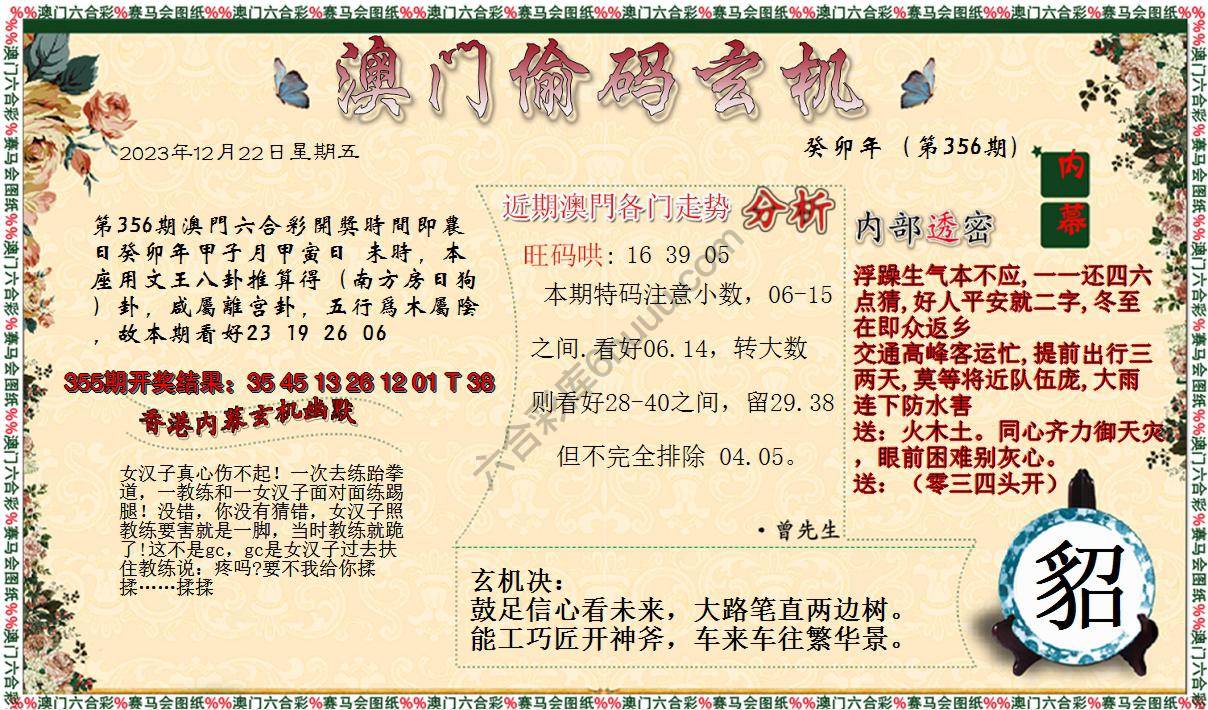 %%澳门六合彩%赛马会图纸%%澳门六合彩%赛马会图纸%%澳门六合彩%赛马会图纸%%澳门六合彩%赛马会图纸%%澳门六合彩%赛马会图纸%%澳门六合彩%赛马会图纸%%
澳门偷码玄机
2023年12月22日星期五
癸卯年（第356期）
内
幕
第356期澳門六合彩開獎時間即農
日癸卯年甲子月甲寅日 未時，本
座用文王八卦推算得（南方房日狗
）卦，咸屬離宫卦，五行爲木屬陰
，故本期看好23 19 26 06
355期开奖结果：35 45 13 26 12 01 T 38
香港内幕玄机幽默
女汉子真心伤不起！一次去练跆拳
道，一教练和一女汉子面对面练踢
腿！没错，你没有猜错，女汉子照
教练要害就是一脚，当时教练就跪
了!这不是gc，gc是女汉子过去扶
住教练说：疼吗?要不我给你揉
揉……揉揉
近期澳門各门走势 分析
旺码哄: 16 39 05
本期特码注意小数，06-15
之间.看好06.14，转大数
则看好28-40之间，留29.38
但不完全排除 04.05。
·曾先生
内部透密
浮躁生气本不应,一一还四六
点猜,好人平安就二字,冬至
在即众返乡
交通高峰客运忙,提前出行三
两天,莫等将近队伍庞,大雨
连下防水害
送：火木土。同心齐力御天灾
，眼前困难别灰心。
送：（零三四头开）
玄机决：
鼓足信心看未来，大路笔直两边树。
能工巧匠开神斧，车来车往繁华景。
貂